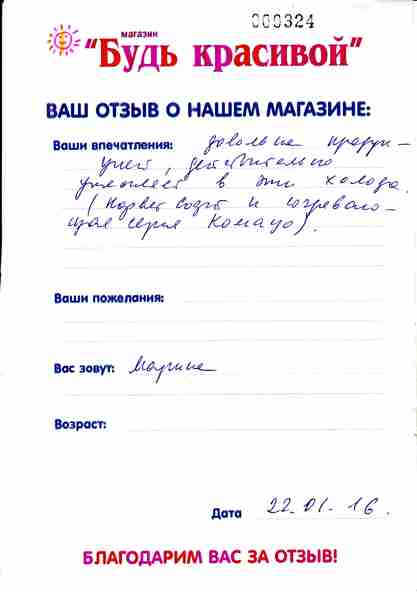 000324
магазин
"Будь красивой"
ВАШ ОТЗЫВ О НАШЕМ МАГАЗИНЕ:
Ваши впечатления: довольна продук-
цией, действительно
утепляет в эти холода.
( и согреваю-
щая серия Комазо).
Ваши пожелания:
Вас зовут: Марина
Возраст:
Дата 22.01.16.
БЛАГОДАРИМ ВАС ЗА ОТЗЫВ!